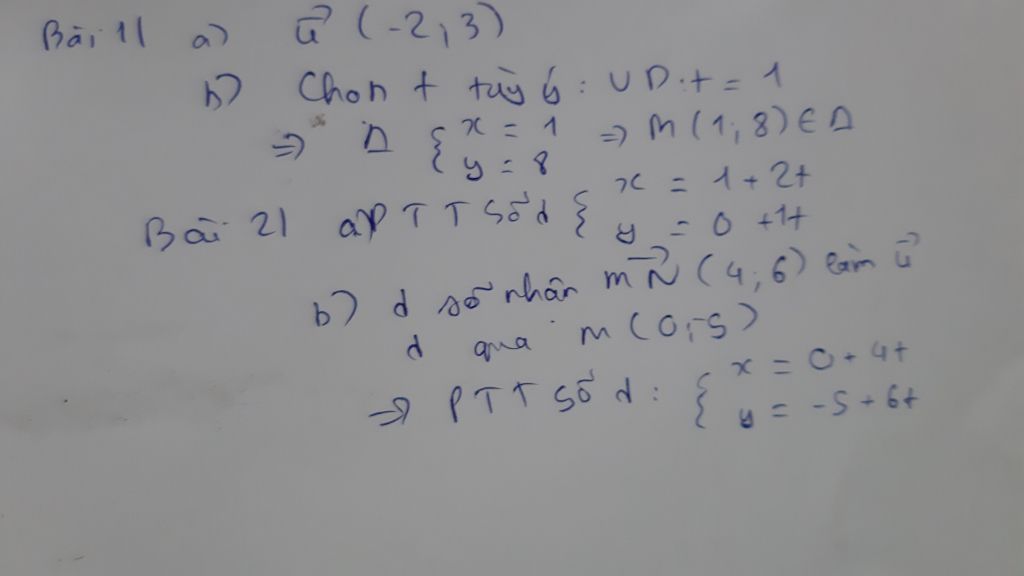 Bài 1| a) u⃗ (-2; 3)
b) Chọn t tùy ý: VD: t = 1
=> Δ { x = 1
y = 8 => M(1; 8) ∈ Δ
Bài 2| a) PTT Số d { x = 1 + 2t
y = 0 + 1t
b) d sẽ nhận MN⃗ (4; 6) làm u⃗
d qua M(0; -5)
=> PTT Số d: { x = 0 + 4t
y = -5 + 6t